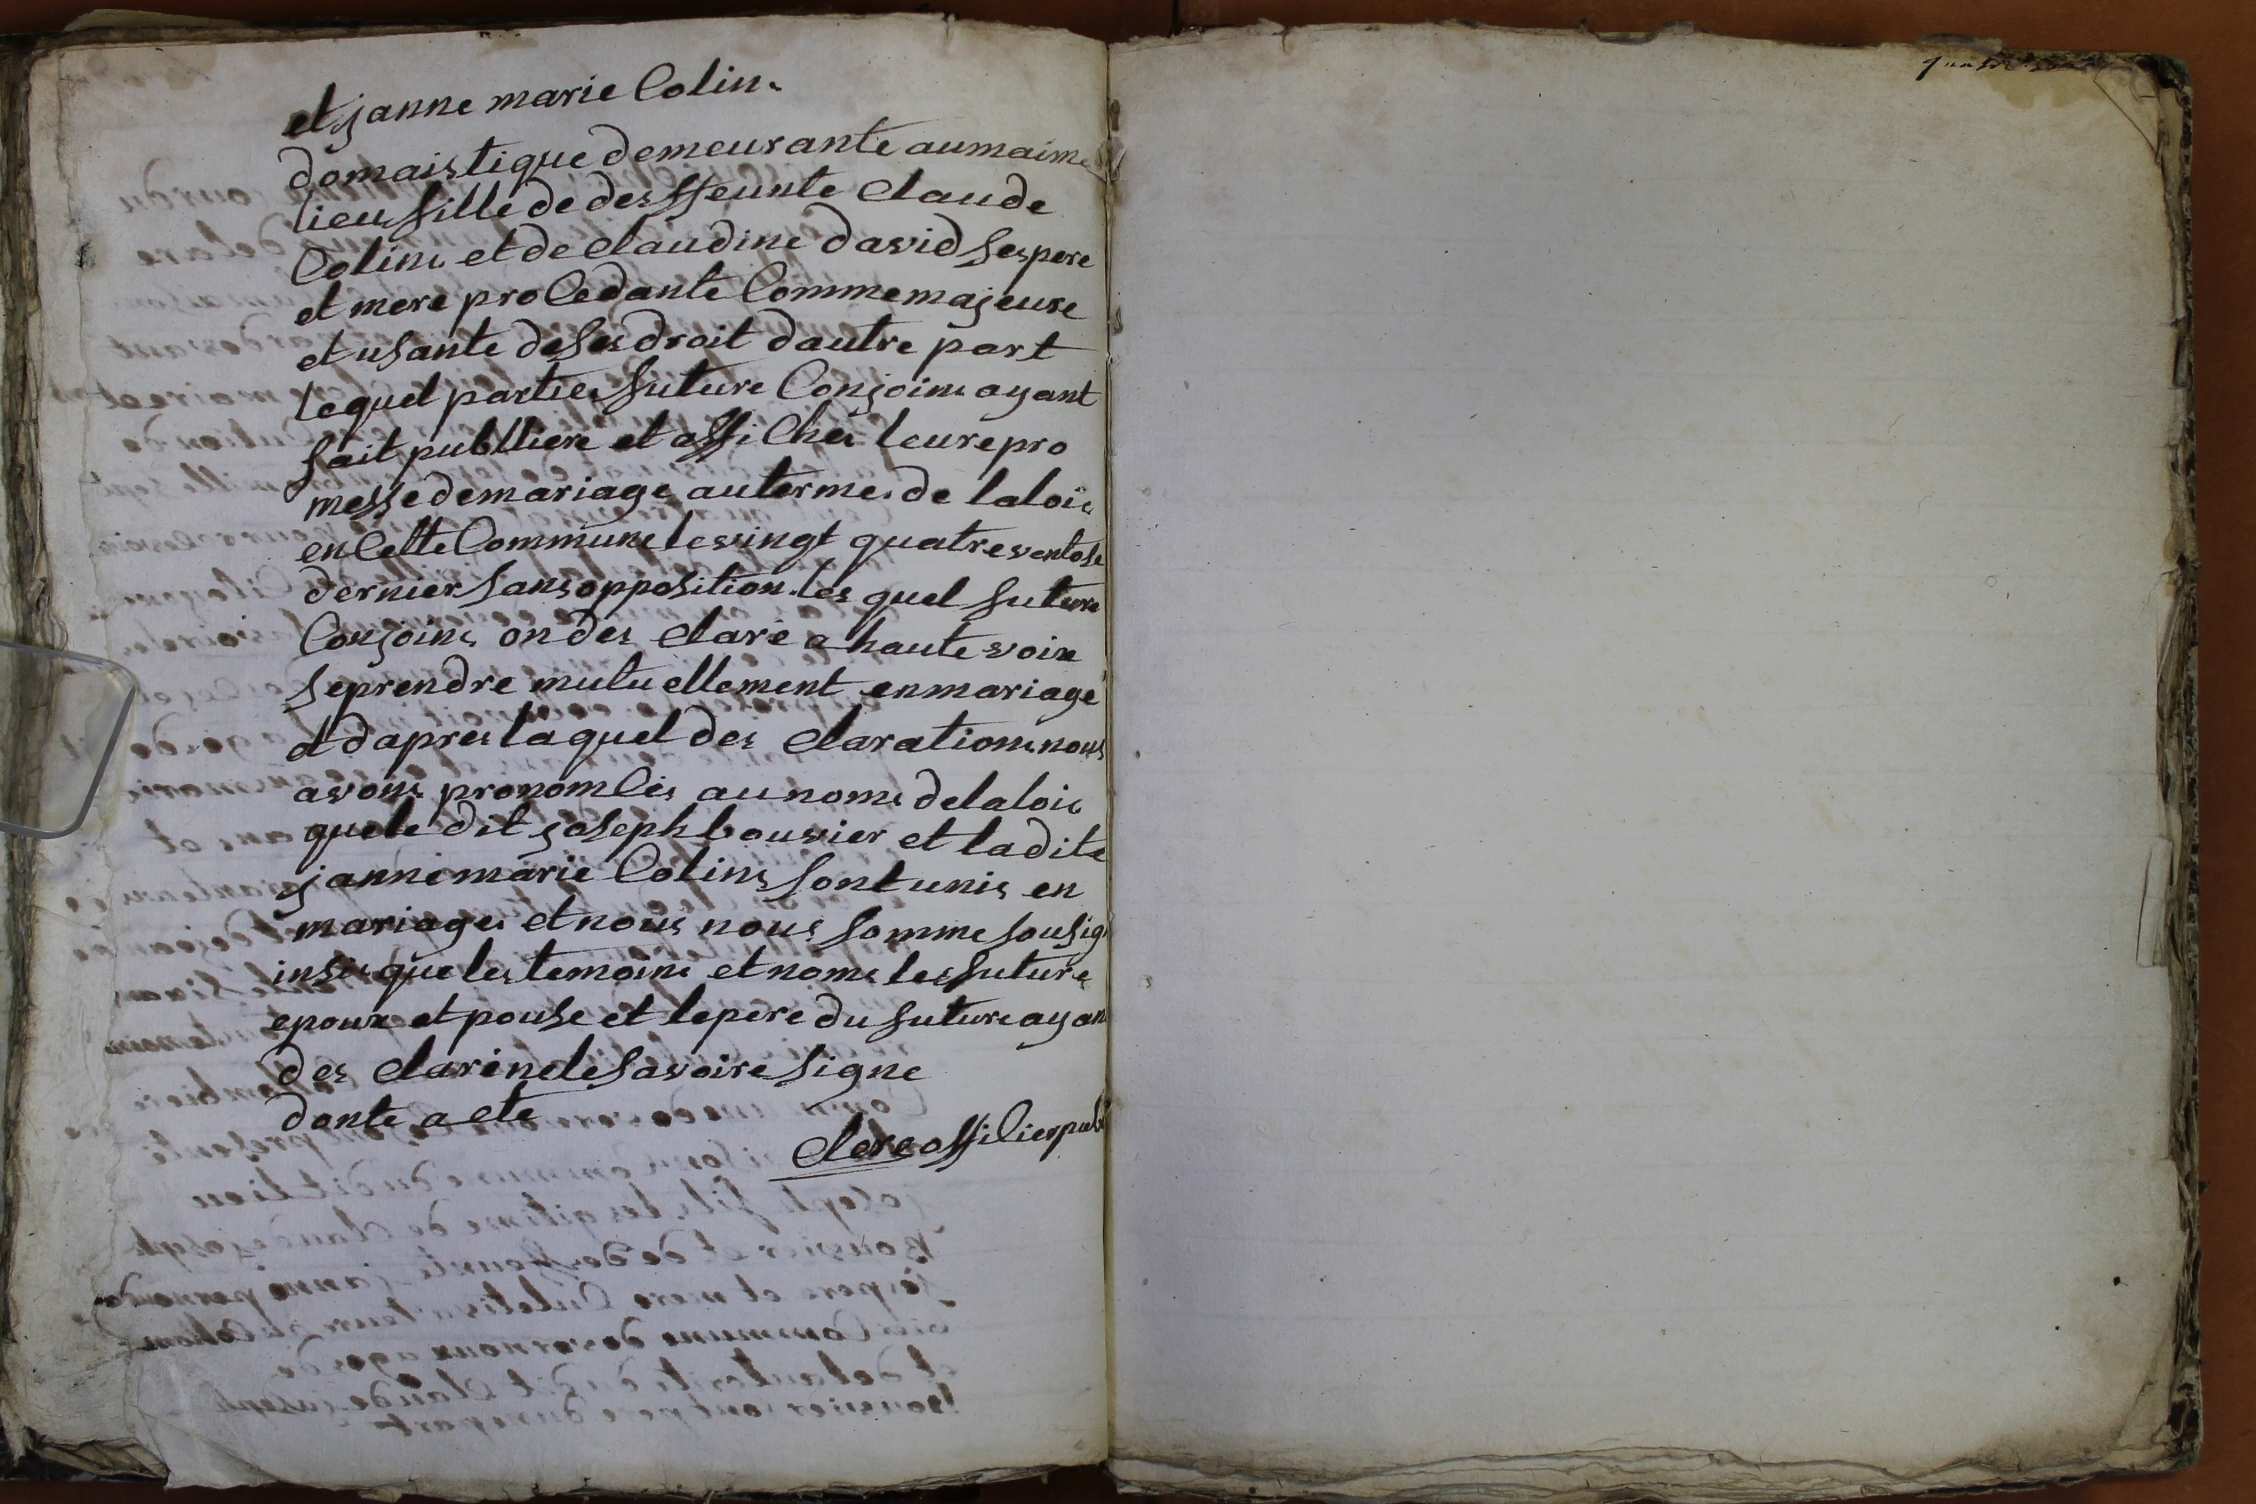 et janne marie Colin
domaistique demeurante aumaime
lieu fille de desffeunte Claude
Colins et de Claudine david Ses pere
et mere proCedante Comme majeure
et usante de Ses droit dautre part
lequel parties future Conjoins ayant
fait publliere et affiCher leure pro
messe de mariage au termes de la lois
en Cette Commune le vingt quatre ventose
dernier Sans opposition. les quel future
Conjoins on des Claré a haute voix
Se prendre mutuellement en mariage
et dapres laquel des Clarations nous
avons pronomCes au noms de la lois
que le dit joseph bouvier et ladite
janne marie Colins Sont unis en
mariages et nous nous Somme Sousig
insis que les temoins et noms les future
epoux et pouse et le pere du future ayan
des Clarinele Savoire Signe
donte a cte
Clerc offiCier publ